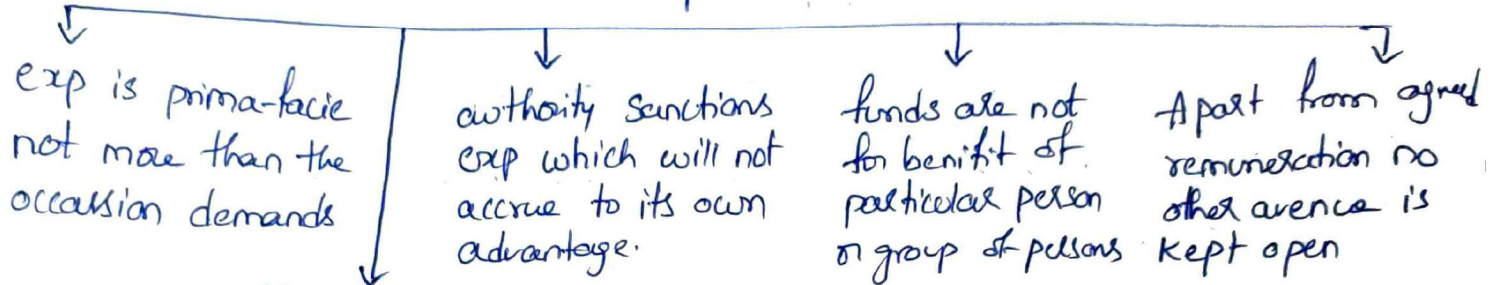 exp is prima-facie
not more than the
occassion demands
authority sanctions
exp which will not
accrue to its own
advantage.
funds are not
for benifit of
particular person
or group of persons
Apart from agreed
remuneration no
other avence is
kept open